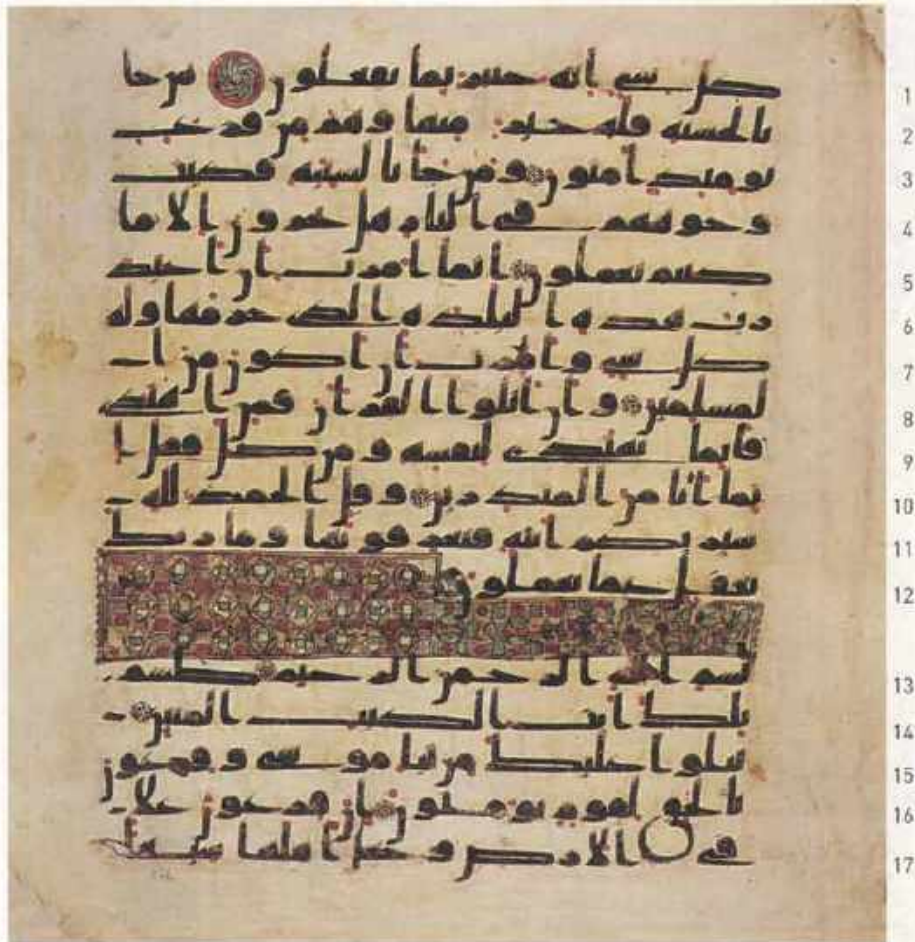 كل شى انه خبير بما تفعلون من جا 1
بالحسنة فله خير منها وهم من فزع 2
يومئذ امنون ومن جا بالسيئة فكبت 3
وجوههم في النار هل تجزون الا ما 4
كنتم تعملون انما امرت ان اعبد 5
رب هذه البلدة الذي حرمها وله 6
كل شى وامرت ان اكون من ا 7
لمسلمين وان اتلوا القران فمن اهتدى 8
فانما يهتدى لنفسه ومن ضل فقل ا 9
نما انا من المنذرين وقل الحمد لله 10
سيريكم ايته فتعرفونها وما ربك 11
بغفل عما تعملون 12
بسم الله الرحمن الرحيم طسم 13
تلك ايت الكتب المبين 14
نتلوا عليك من نبا موسى وفرعون 15
بالحق لقوم يومنون ان فرعون علا 16
في الارض وجعل اهلها شيعا 17